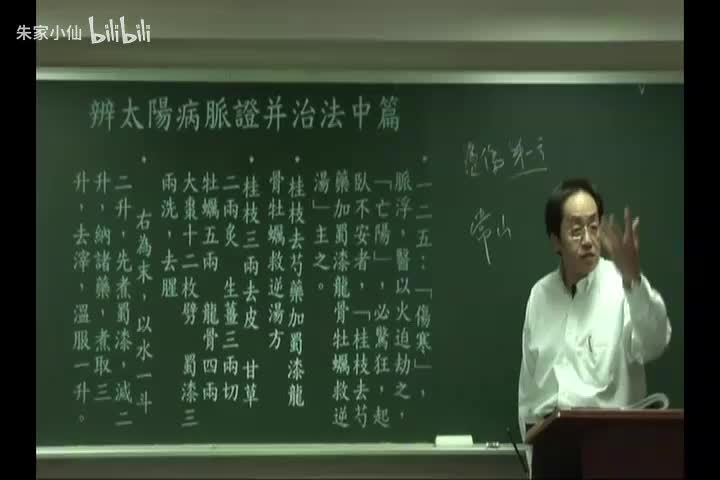 朱家小仙 bilibili
辨太陽病脈證并治法中篇
・一二五：「傷寒」，
脈浮，醫以火迫劫之，
「亡陽」，必驚狂，起
臥不安者，「桂枝去芍
藥加蜀漆龍骨牡蠣救逆
湯」主之。
・桂枝去芍藥加蜀漆龍
骨牡蠣救逆湯方
・桂枝三兩去皮　甘草
二兩炙　生薑三兩切
牡蠣五兩　龍骨四兩
大棗十二枚劈　蜀漆三
兩洗，去腥
・右為末，以水一斗
二升，先煮蜀漆，減二
升，納諸藥，煮取三
升，去滓，溫服一升。
傷第一方
常山